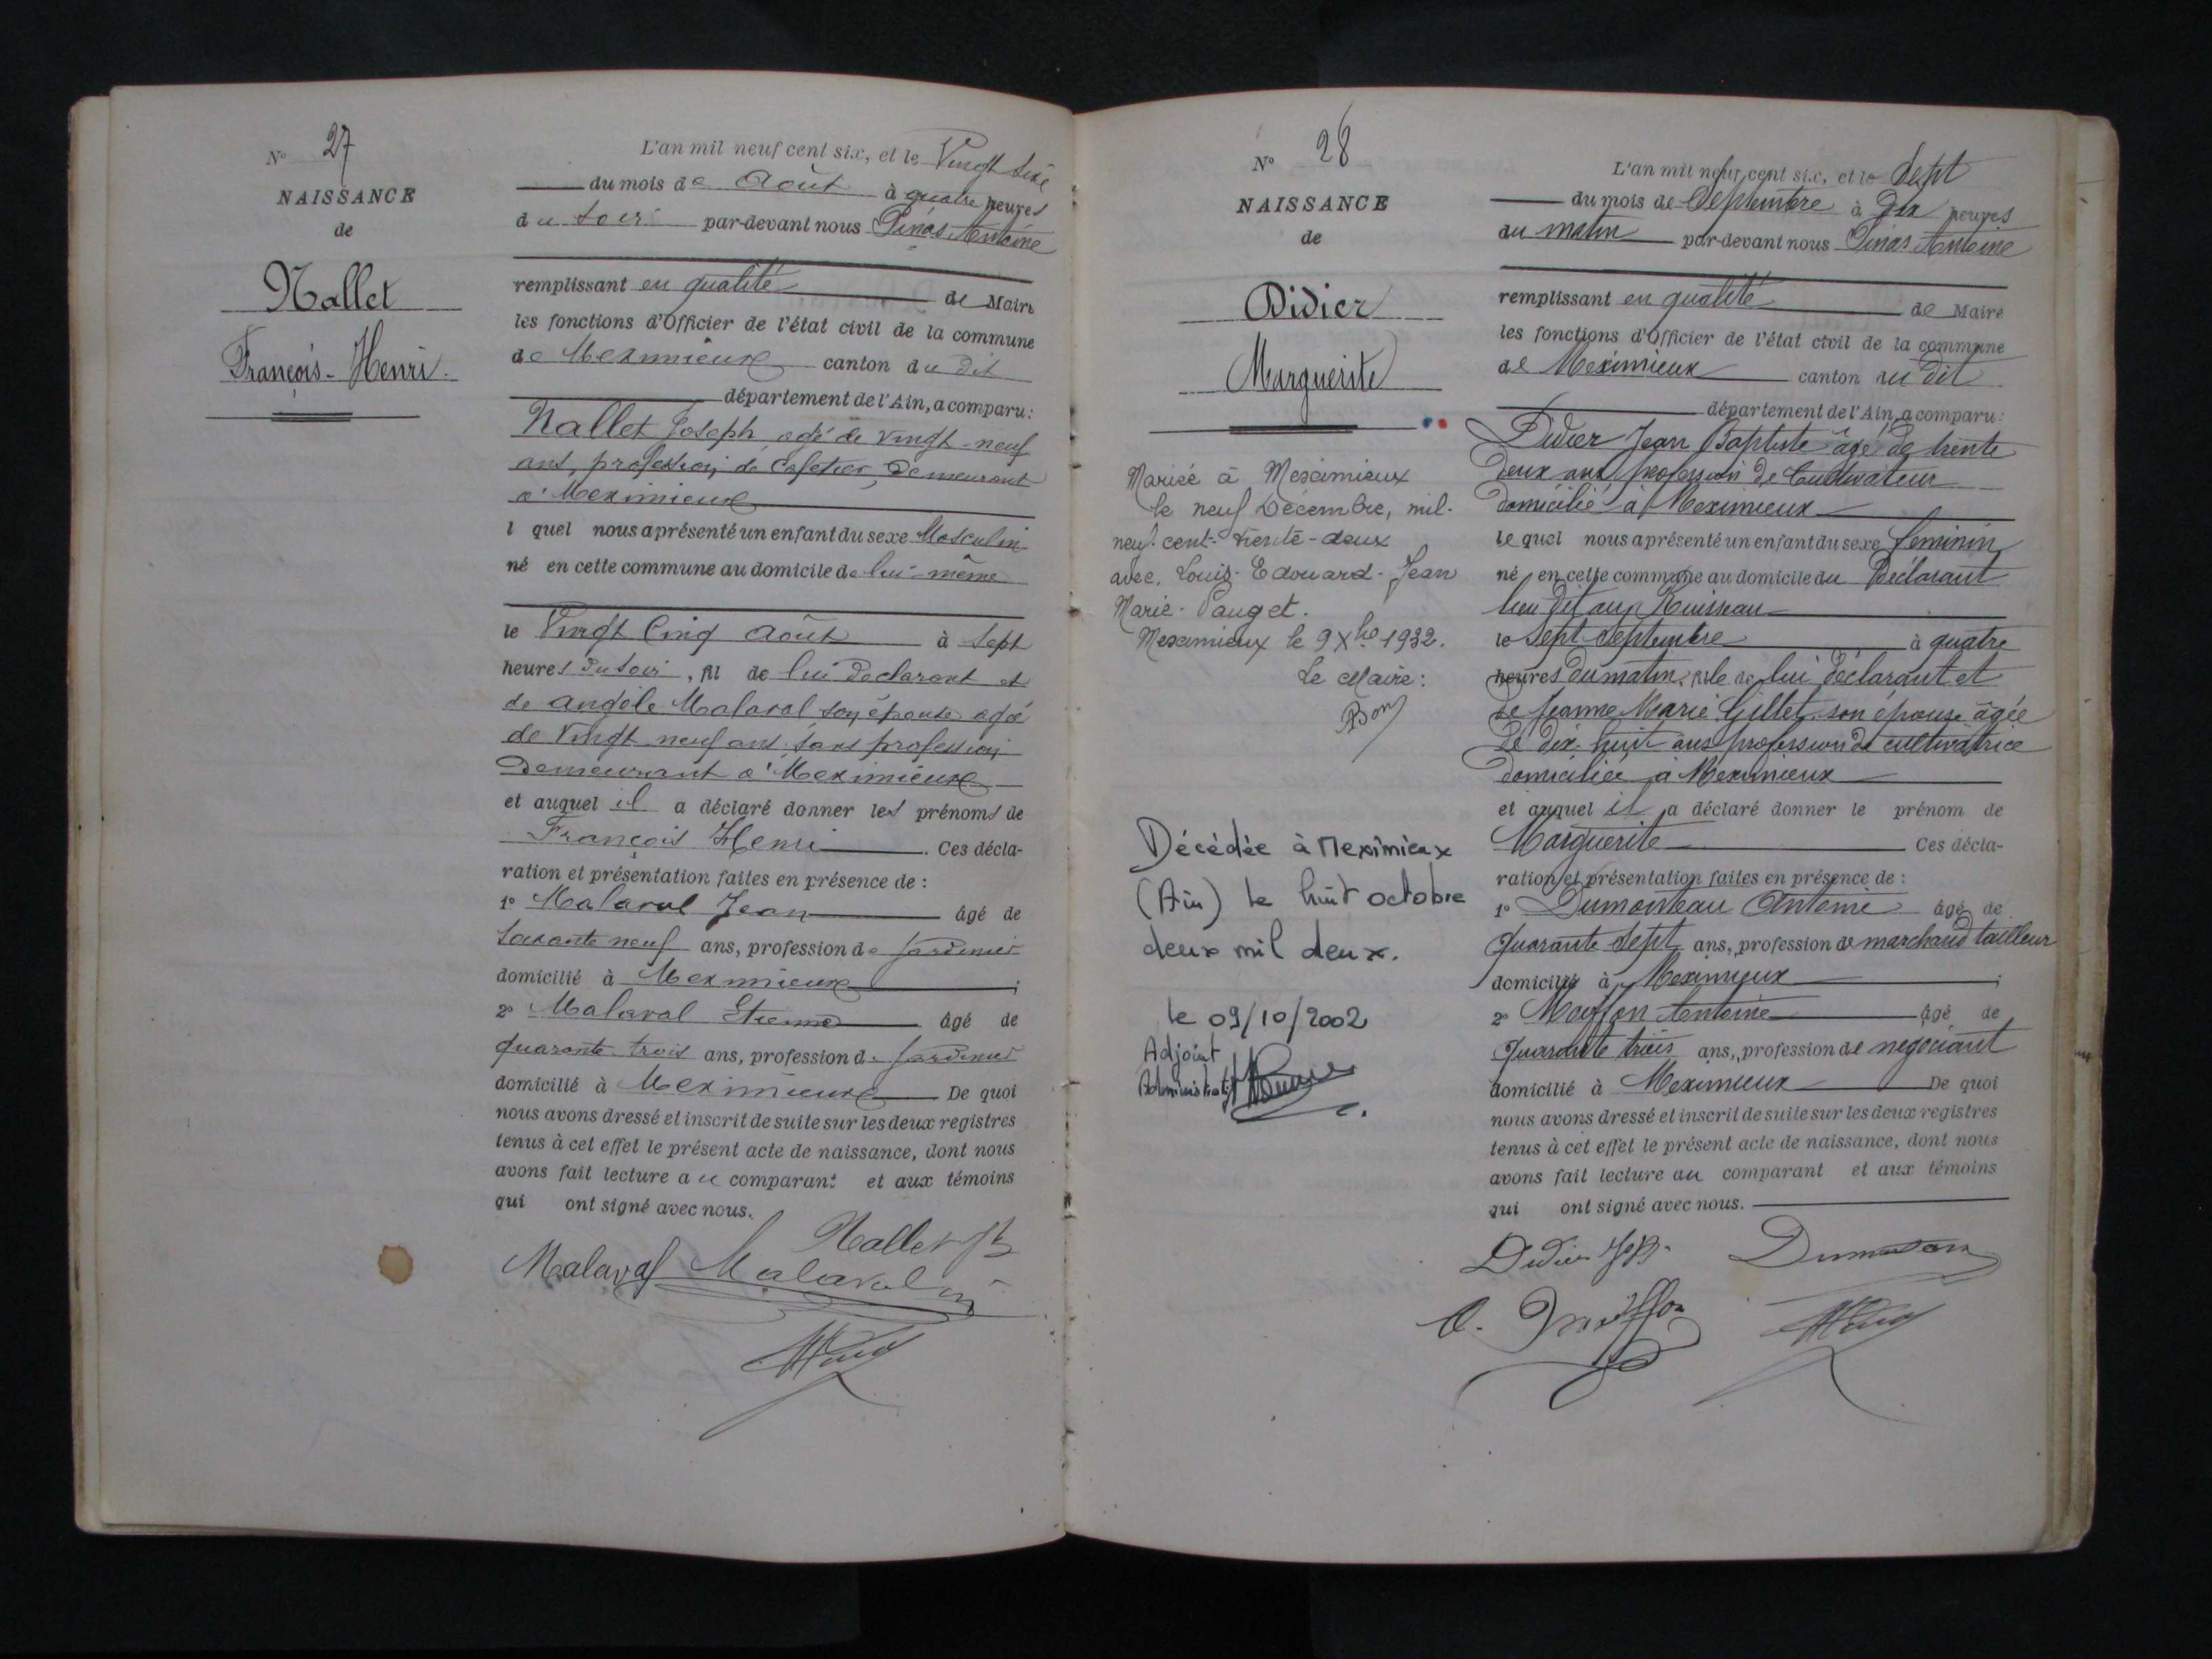 N° 27
NAISSANCE
de
Nallet
François-Henri.
L'an mil neuf cent six, et le Vingt Sixe
du mois de Août à quatre heures
du soir par-devant nous Pinás Antoine
remplissant en qualité de Maire
les fonctions d'Officier de l'état civil de la commune
de Meximieux canton du dit
département de l'Ain, a comparu:
Nallet Joseph agé de vingt-neuf
ans, profession de Cafetier, demeurant
à Meximieux
l quel nous a présenté un enfant du sexe Masculin
né en cette commune au domicile de lui-même
le Vingt Cinq Août à Sept
heures du soir, fil de lui déclarant et
de Angèle Malaval son épouse agée
de Vingt neuf ans sans profession
Demeurant à Meximieux
et auquel il a déclaré donner les prénoms de
François Henri. Ces décla-
ration et présentation faites en présence de :
1° Malaval Jean âgé de
Soixante neuf ans, profession de Jardinier
domicilié à Meximieux ;
2° Malaval Etienne âgé de
quarante trois ans, profession de Jardinier
domicilié à Meximieux De quoi
nous avons dressé et inscrit de suite sur les deux registres
tenus à cet effet le présent acte de naissance, dont nous
avons fait lecture au comparant et aux témoins
qui ont signé avec nous.
Nallet
Malaval Malaval
N° 28
NAISSANCE
de
Didier
Marguerite
Mariée à Meximieux
le neuf Décembre, mil-
neuf-cent-trente-deux
avec Louis-Edouard-Jean
Marie-Pauget.
Meximieux le 9 Xbre 1932.
Le Maire:
Décédée à Meximieux
(Ain) le huit octobre
deux mil deux.
le 09/10/2002
Adjoint
Administratif
L'an mil neuf cent six, et le Sept
du mois de Septembre à Dix heures
du matin par-devant nous Pinás Antoine
remplissant en qualité de Maire
les fonctions d'Officier de l'état civil de la commune
de Meximieux canton du dit
département de l'Ain, a comparu:
Didier Jean Baptiste âgé de trente
deux ans profession de Cultivateur
domicilié à Meximieux
le quel nous a présenté un enfant du sexe feminin
né en cette commune au domicile du Déclarant
lieu dit aux Ruisseau
le sept Septembre à quatre
heures du matin, fille de lui déclarant et
de Jeanne Marie Gillet son épouse âgée
de dix huit ans profession de cultivatrice
domiciliée à Meximieux
et auquel il a déclaré donner le prénom de
Marguerite Ces décla-
ration et présentation faites en présence de :
1° Dumonteau Antoine âgé de
Quarante Sept ans, profession de marchand tailleur
domicilié à Meximieux ;
2° Moiffon Antoine âgé de
Quarante trois ans, profession de négociant
domicilié à Meximieux De quoi
nous avons dressé et inscrit de suite sur les deux registres
tenus à cet effet le présent acte de naissance, dont nous
avons fait lecture au comparant et aux témoins
qui ont signé avec nous.
Didier